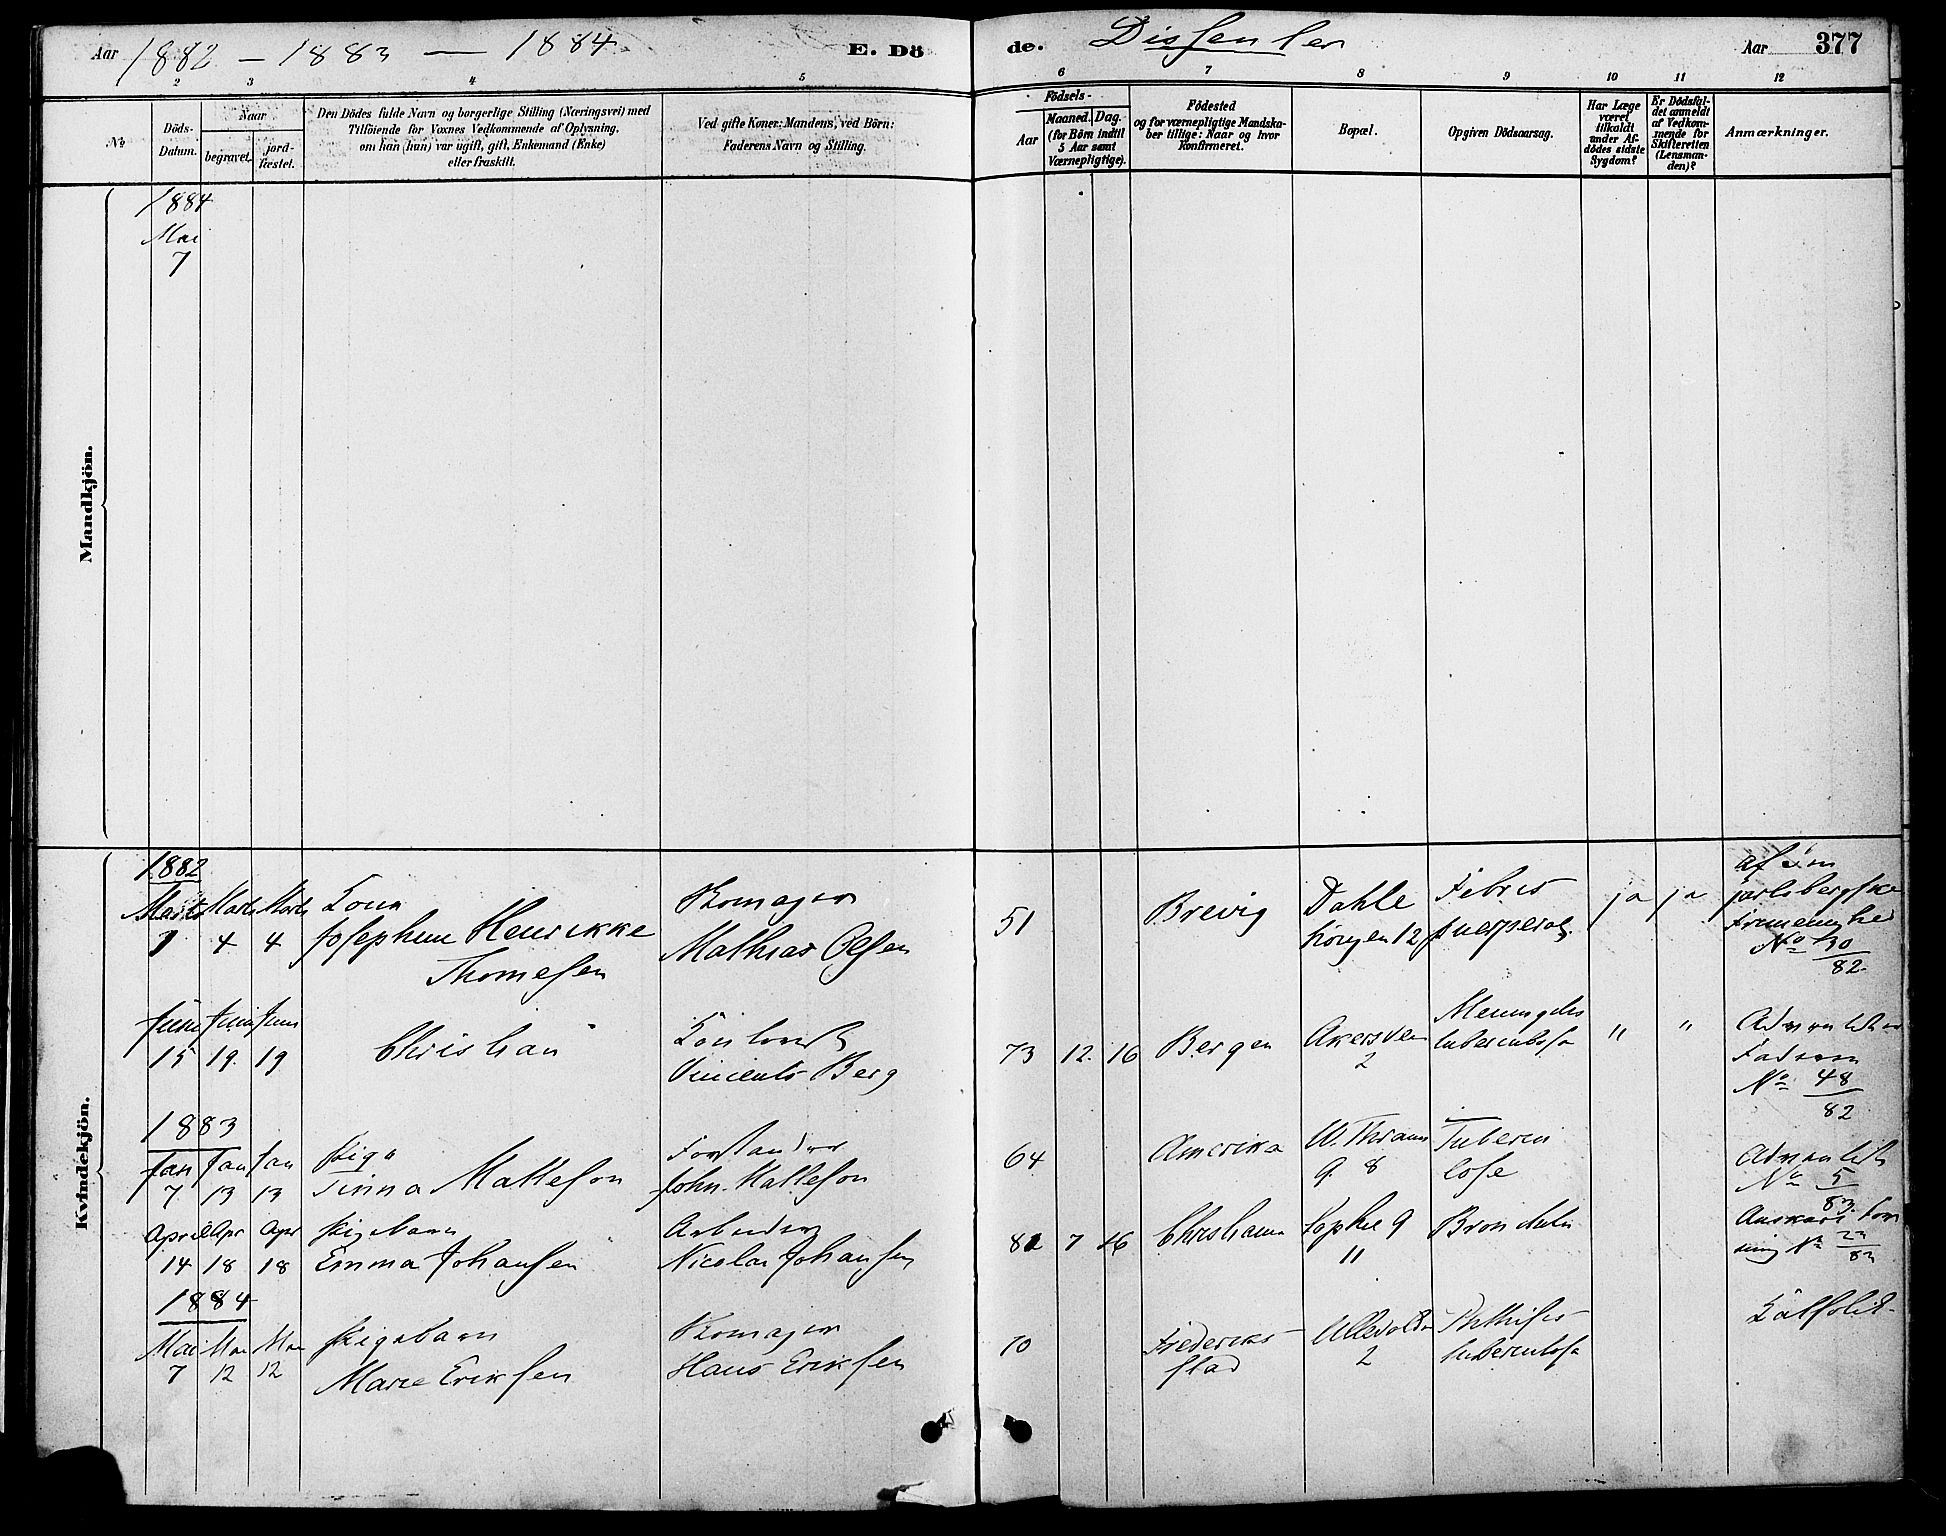 Aar 1882 – 1883 – 1884. E. Dö de. Dissenter Aar 377
2 3 4 5 6 7 8 9 10 11 12
No
Döds-Datum.
Naar
begravet.
jord-fæstet.
Den Dödes fulde Navn og borgerlige Stilling (Næringsvei) med
Tilföiende for Voxnes Vedkommende af Oplysning,
om han (hun) var ugift, gift, Enkemand (Enke)
eller fraskilt.
Ved gifte Koner: Mandens, ved Börn:
Faderens Navn og Stilling.
Födsels-
Aar
Maaned.
Dag.
(for Börn indtil
5 Aar samt
Værnepligtige).
Födested
og for værnepligtige Mandska-
ber tillige: Naar og hvor
Konfirmeret.
Bopæl.
Opgiven Dödsaarsag.
Har Læge
været
tilkaldt
under Af-
dödes sidste
Sygdom?
Er Dödsfal-
det anmeldt
af Vedkom-
mende for
Skifteretten
(Lensman-
den)?
Anmærkninger.
Mandkjön.
1884
Mai
7
Kvindekjön.
1882
Marts Marts Marts Kona Skomager Brevig Dahle Febris ja ja
1 4 4 Josephine Henrikke Mathias Olsen 51 12 puerperal.
Thomesen
No 130
82
Juni Juni Juni
15 19. 19 Christian Vincents Berg 73 12. 16 Bergen Akersvei 2 tuberculosa " "
No 48
82
1883
Jan Jan Jan Pige Forstander 64 Amerika W. Thranes Tubercu
7 13 13 Tinna Matteson John Matteson G. 8 lose
No 5
83.
April Apr Apr Pigebarn Arbeider 82 7 16 Christiania Sophies G
14 18 18 Emma Johansen Nicolai Johansen 11
1884
Mai Mai Mai Pigebarn Skomager 70 Frederiks Ullevolsv Phthisis
7 12 12 Marie Eriksen Hans Eriksen stad 2 tuberculosa
Katholik.